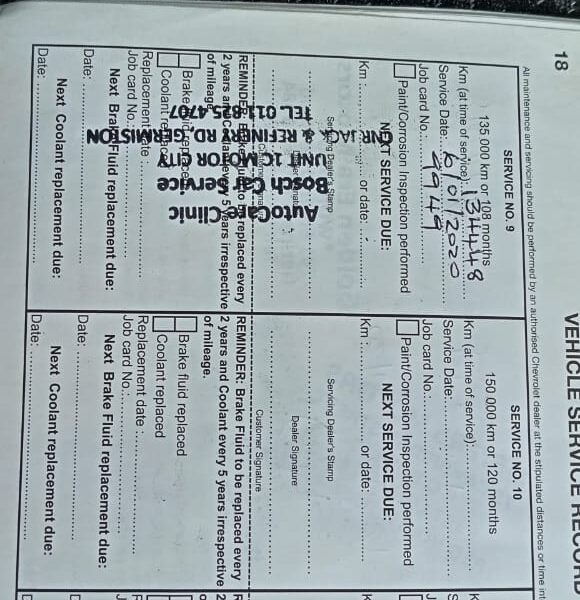 18
VEHICLE SERVICE RECORD
All maintenance and servicing should be performed by an authorised Chevrolet dealer at the stipulated distances or time int
SERVICE NO. 9
135 000 km or 108 months
Km (at time of service): 134448
Service Date: 6/01/2020
Job card No.: 4949
Paint/Corrosion Inspection performed
NEXT SERVICE DUE:
Km : or date:
Servicing Dealer's Stamp
AutoCare Clinic
Bosch Car Service
UNIT 1C MOTOR CITY
CNR JACK & REFINERY RD, GERMISTON
TEL 011 825 4707
Dealer Signature
Customer Signature
REMINDER: Brake Fluid to be replaced every
2 years and Coolant every 5 years irrespective
of mileage.
Brake fluid replaced
Coolant replaced
Replacement date :
Job card No.:
Next Brake Fluid replacement due:
Date:
Next Coolant replacement due:
Date:
SERVICE NO. 10
150 000 km or 120 months
Km (at time of service):
Service Date:
Job card No.
Paint/Corrosion Inspection performed
NEXT SERVICE DUE:
Km : or date:
Servicing Dealer's Stamp
Dealer Signature
Customer Signature
REMINDER: Brake Fluid to be replaced every
2 years and Coolant every 5 years irrespective
of mileage.
Brake fluid replaced
Coolant replaced
Replacement date :
Job card No.:
Next Brake Fluid replacement due:
Date:
Next Coolant replacement due:
Date: